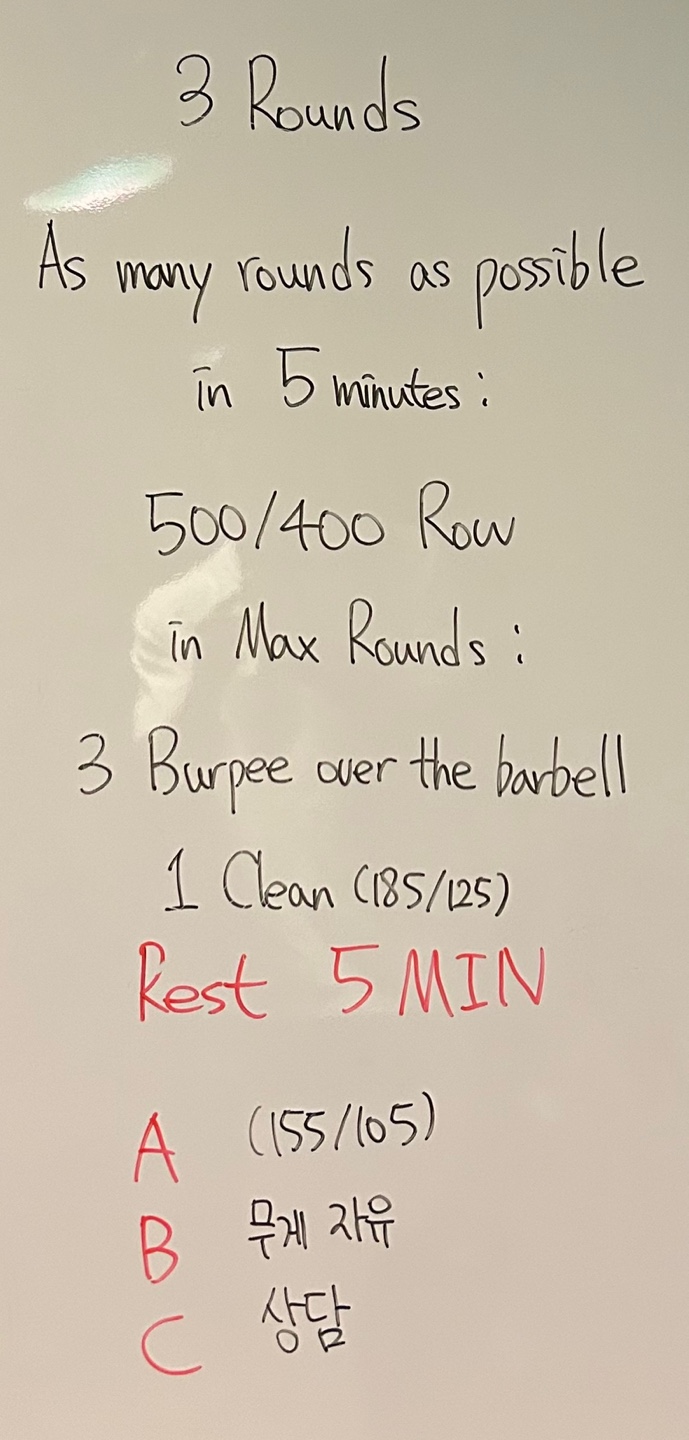 3 Rounds
As many rounds as possible
in 5 minutes:
500/400 Row
in Max Rounds:
3 Burpee over the barbell
1 Clean (185/125)
Rest 5 MIN
A (155/105)
B 무게 자유
C 상담